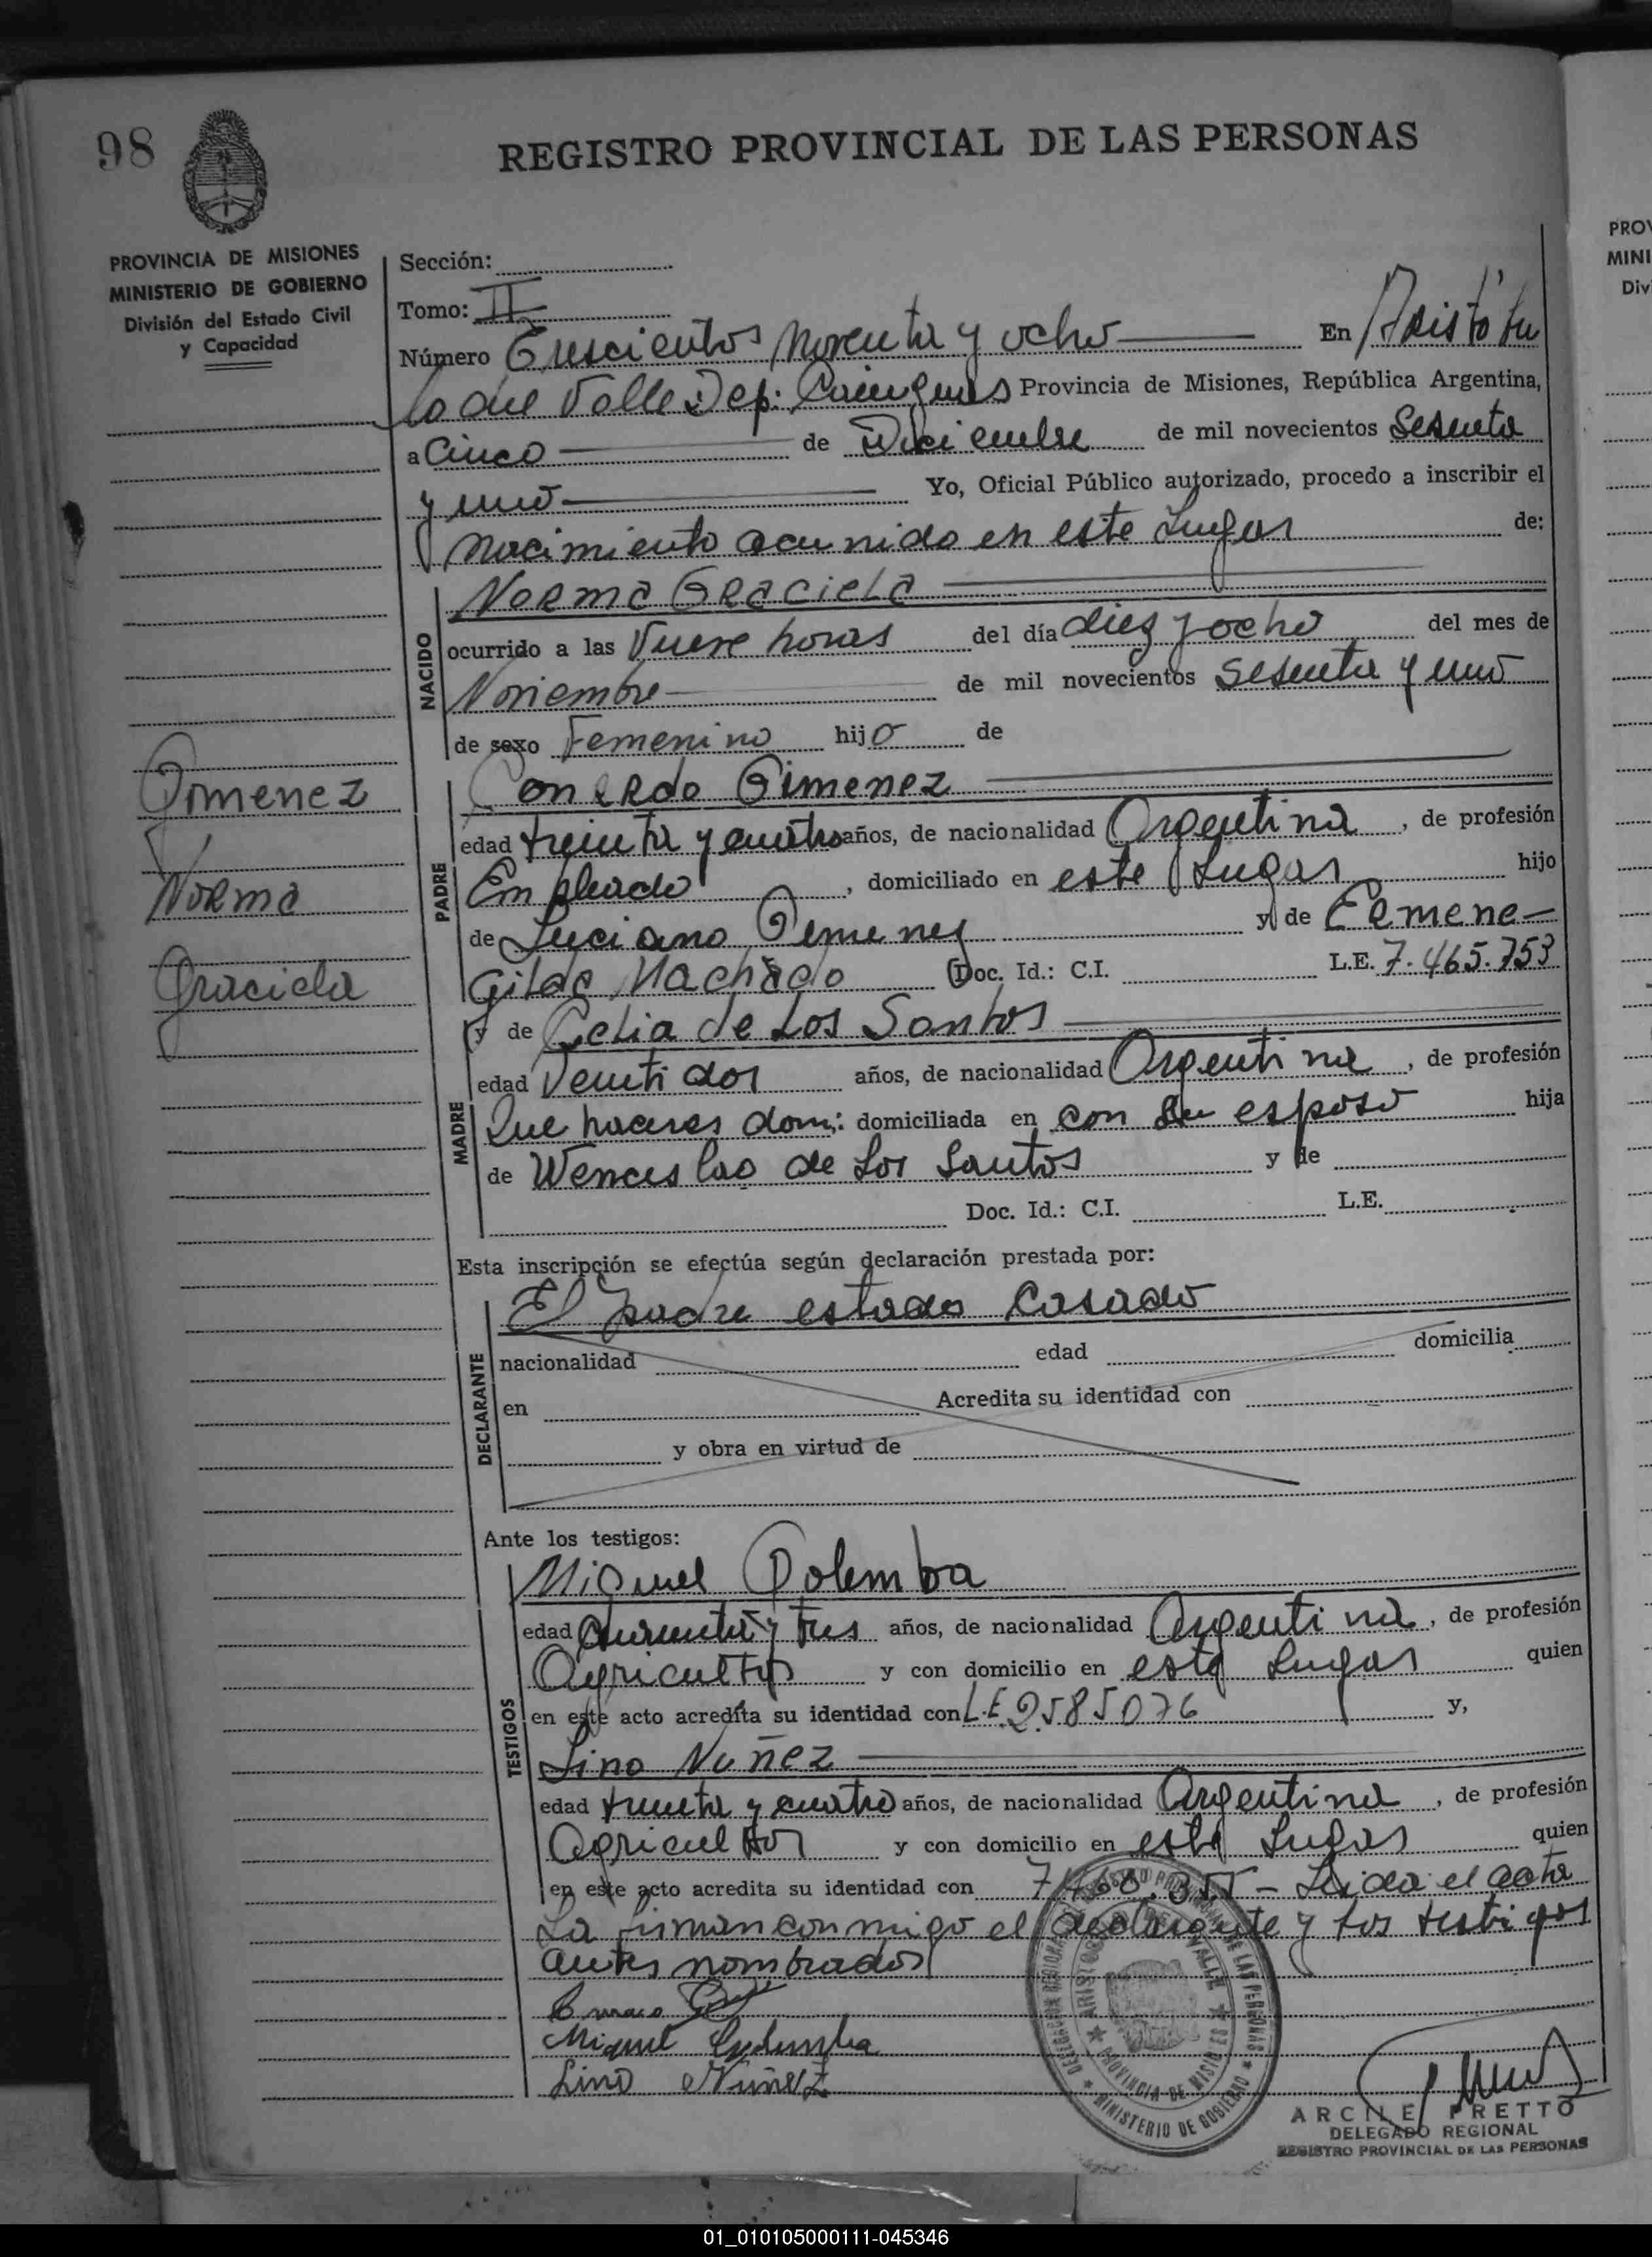 98
REGISTRO PROVINCIAL DE LAS PERSONAS
PROVINCIA DE MISIONES
MINISTERIO DE GOBIERNO
División del Estado Civil
y Capacidad
Sección:
Tomo: II
Número Trescientos Noventa y ocho En Aristótu
lo del Valle Dep: Cainguás Provincia de Misiones, República Argentina,
a Cinco de Diciembre de mil novecientos Sesenta
y uno Yo, Oficial Público autorizado, procedo a inscribir el
Nacimiento ocurrido en este Lugar de:
NACIDO
Norma Graciela
ocurrido a las Nueve horas del día diez y ocho del mes de
Noviembre de mil novecientos sesenta y uno
de sexo Femenino hijo de
Gimenez
Norma
Graciela
PADRE
Conrado Gimenez
edad treinta y cuatro años, de nacionalidad Argentina, de profesión
Empleado, domiciliado en este Lugar hijo
de Luciano Gimenez y de Ermene-
Gilda Machado Doc. Id.: C.I. L.E. 7.465.753
MADRE
y de Celia de Los Santos
edad Veintidos años, de nacionalidad Argentina, de profesión
Que haceres dom: domiciliada en con su esposo hija
de Wenceslao de Los Santos y de
Doc. Id.: C.I. L.E.
Esta inscripción se efectúa según declaración prestada por:
DECLARANTE
El padre estado Casado
nacionalidad edad domicilia
en Acredita su identidad con
y obra en virtud de
Ante los testigos:
TESTIGOS
Miguel Golemba
edad Cuarenta y tres años, de nacionalidad Argentina, de profesión
Agricultor y con domicilio en este Lugar quien
en este acto acredita su identidad con L.E. 2585076 y,
Lino Nuñez
edad treinta y cuatro años, de nacionalidad Argentina, de profesión
Agricultor y con domicilio en este Lugar quien
en este acto acredita su identidad con - Leida el acta
La firman conmigo el declarante y los testigos
antes nombrados
Miguel
Lino Nuñez
DELEGACION REGIONAL REGISTRO PROVINCIAL DE LAS PERSONAS
ARISTOBULO DEL VALLE
PROVINCIA DE MISIONES
MINISTERIO DE GOBIERNO
ARCILE PRETTO
DELEGADO REGIONAL
REGISTRO PROVINCIAL DE LAS PERSONAS
PROV
MINI
Div
01_010105000111-045346